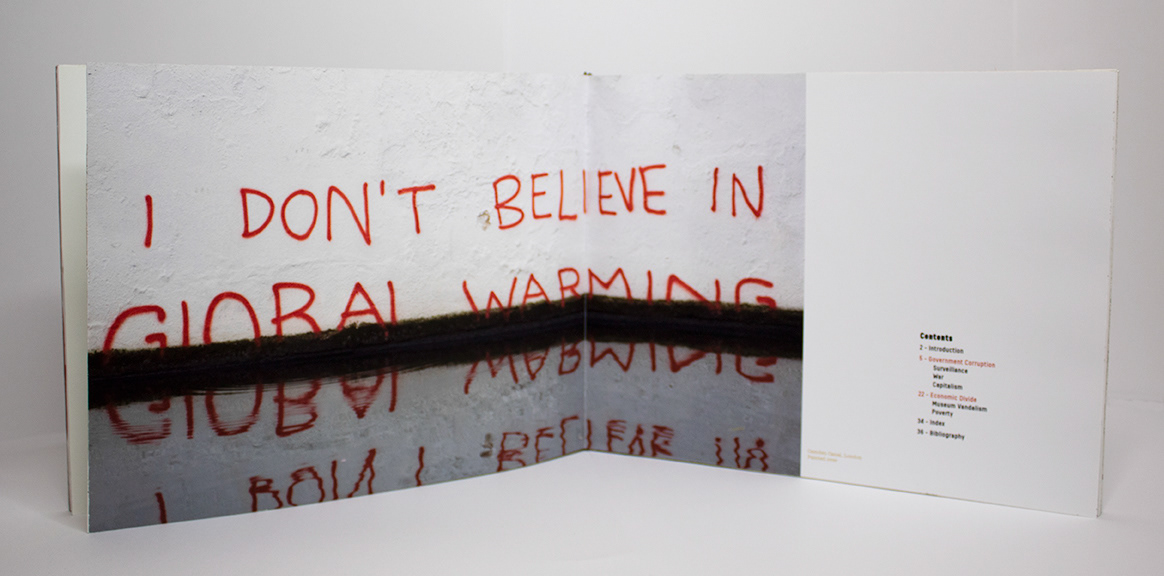 I DON'T BELIEVE IN
GLOBAL WARMING
Contents
2 - Introduction
5 - Government Corruption
Surveillance
War
Capitalism
22 - Economic Divide
Museum Vandalism
Poverty
34 - Index
36 - Bibliography